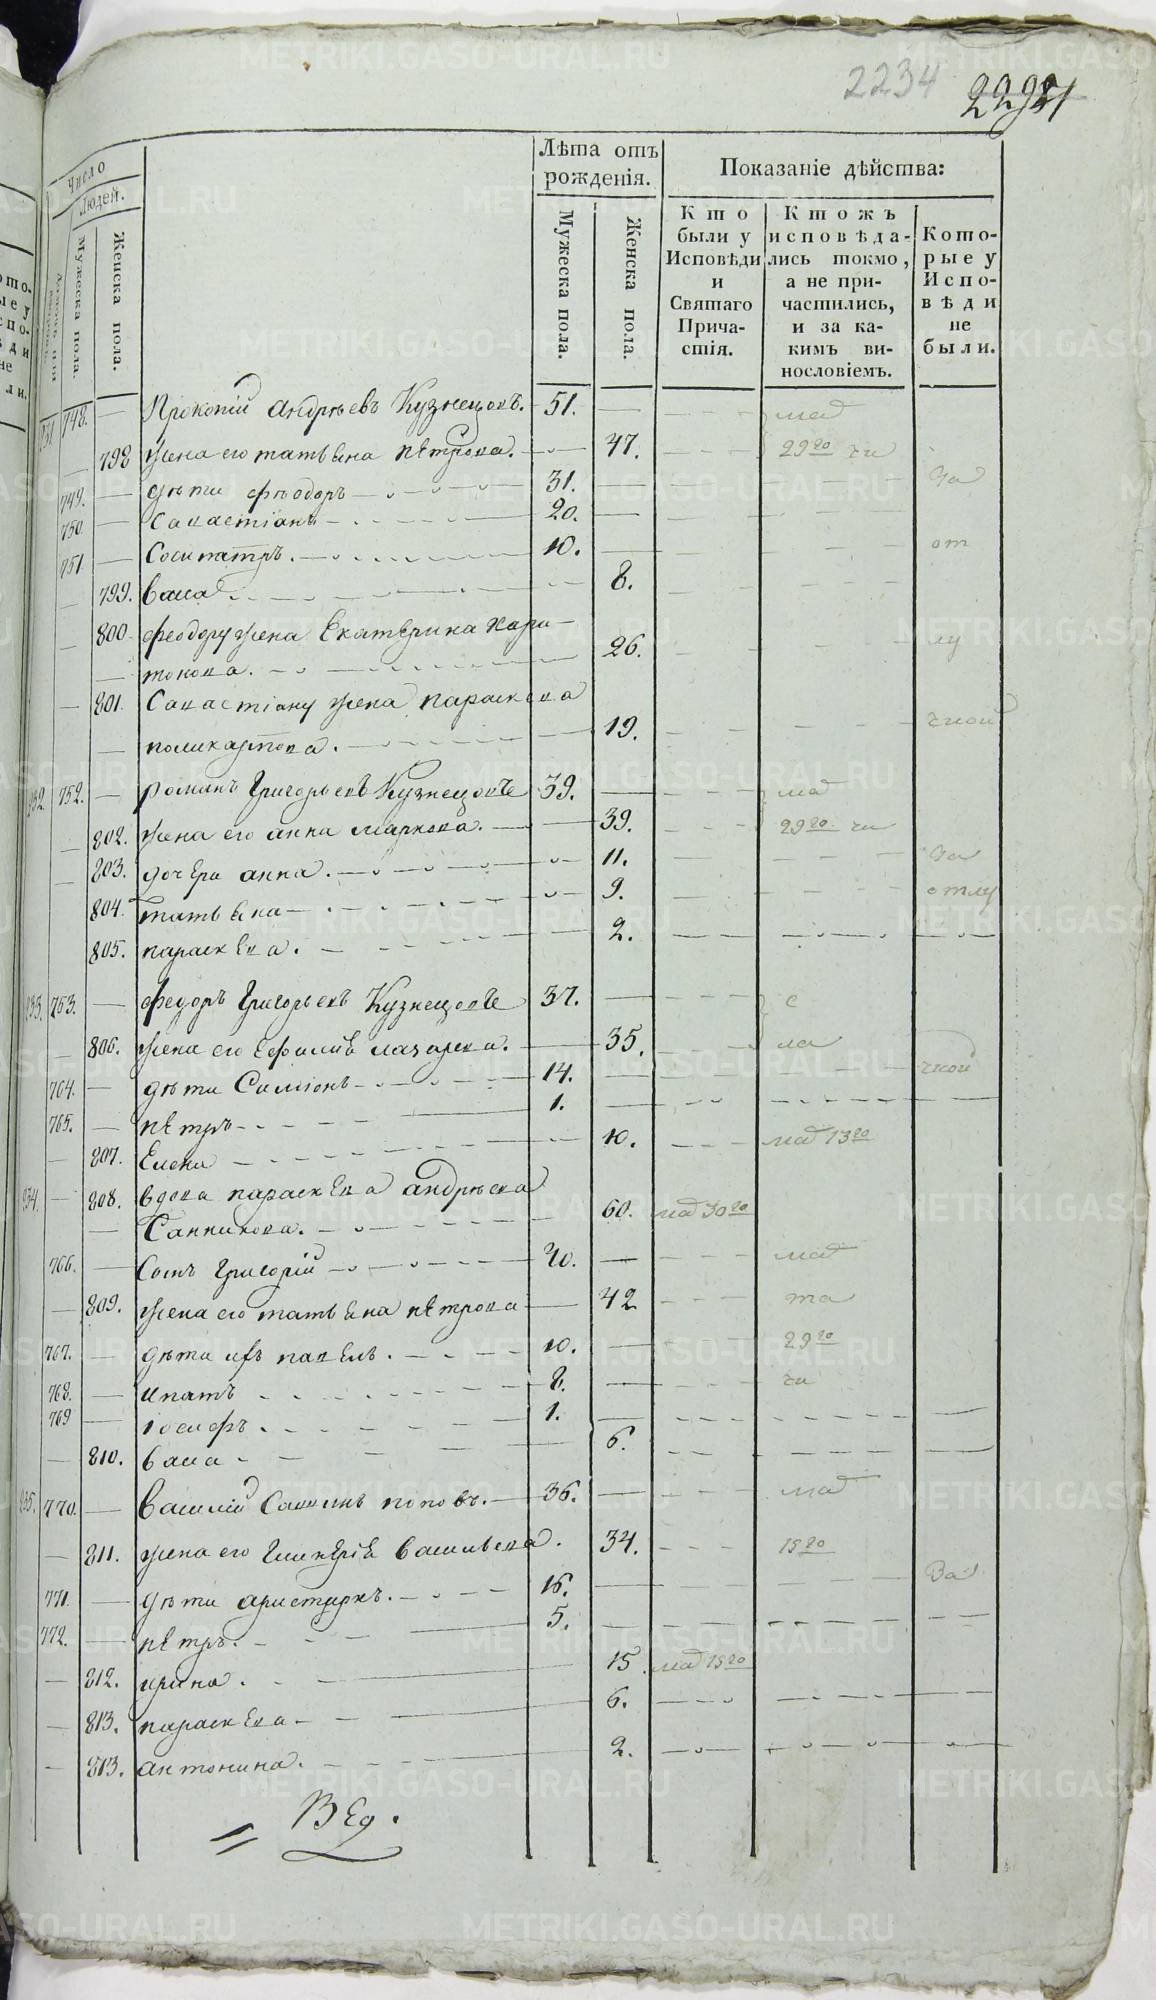 2234 22951
Число
Людей.
Мужеска пола.
Женска пола.
Лѣта отъ рожденія.
Мужеска пола.
Женска пола.
Показаніе дѣйства:
Кто были у Исповѣди и Святаго Прича-стія.
Ктожъ исповѣда-лись токмо, а не при-частились, и за ка-кимъ ви-нословіемъ.
Кото-рые у Испо-вѣди не были.
748. — Прокопій Андрѣевъ Кузнецовъ. 51. — маѳ
798 жена его татьяна петрова. 47. 29го
749. — дѣти феодоръ 31. — за
750 — Савастіанъ 20. —
751 — Сосипатръ. 10. — от
799. васса 8.
800 феодору жена Екатерина хари-
тонова. 26. лу
801. Савастіану жена параскева
поликарпова. 19. чкой
932. 752. — романъ Григорьевъ Кузнецовъ 39. —
802. жена его анна маркова. 39. 29го
803. дочери анна. 11. за
804. татьяна 9. отлу
805. параскева. 2.
933. 753. — федоръ Григорьевъ Кузнецовъ 37. —
806. жена его Ефимія лазарева. 35. чкой
764. — дѣти Симіонъ 14.
765. — петръ 1.
807. Елена 10. 13го
934. 808. вдова параскева андрѣева
Санникова. 60. 30го
766. — Сынъ Григорій 40. —
809. жена его татьяна петрова 42
767. — дѣти ихъ павелъ. 10. 29го
768. — ипатъ 8.
769 — іосифъ. 1.
810. васса 6.
935. 770. — василій Саввинъ поповъ. 36. —
811. жена его Гликерія васильева. 34. 15го
771. — дѣти аристархъ. 16. За
772. — петръ. 5.
812. ирина. 15. 15го
813. параскева 6.
813. антонина. 2.
METRIKI.GASO-URAL.RU